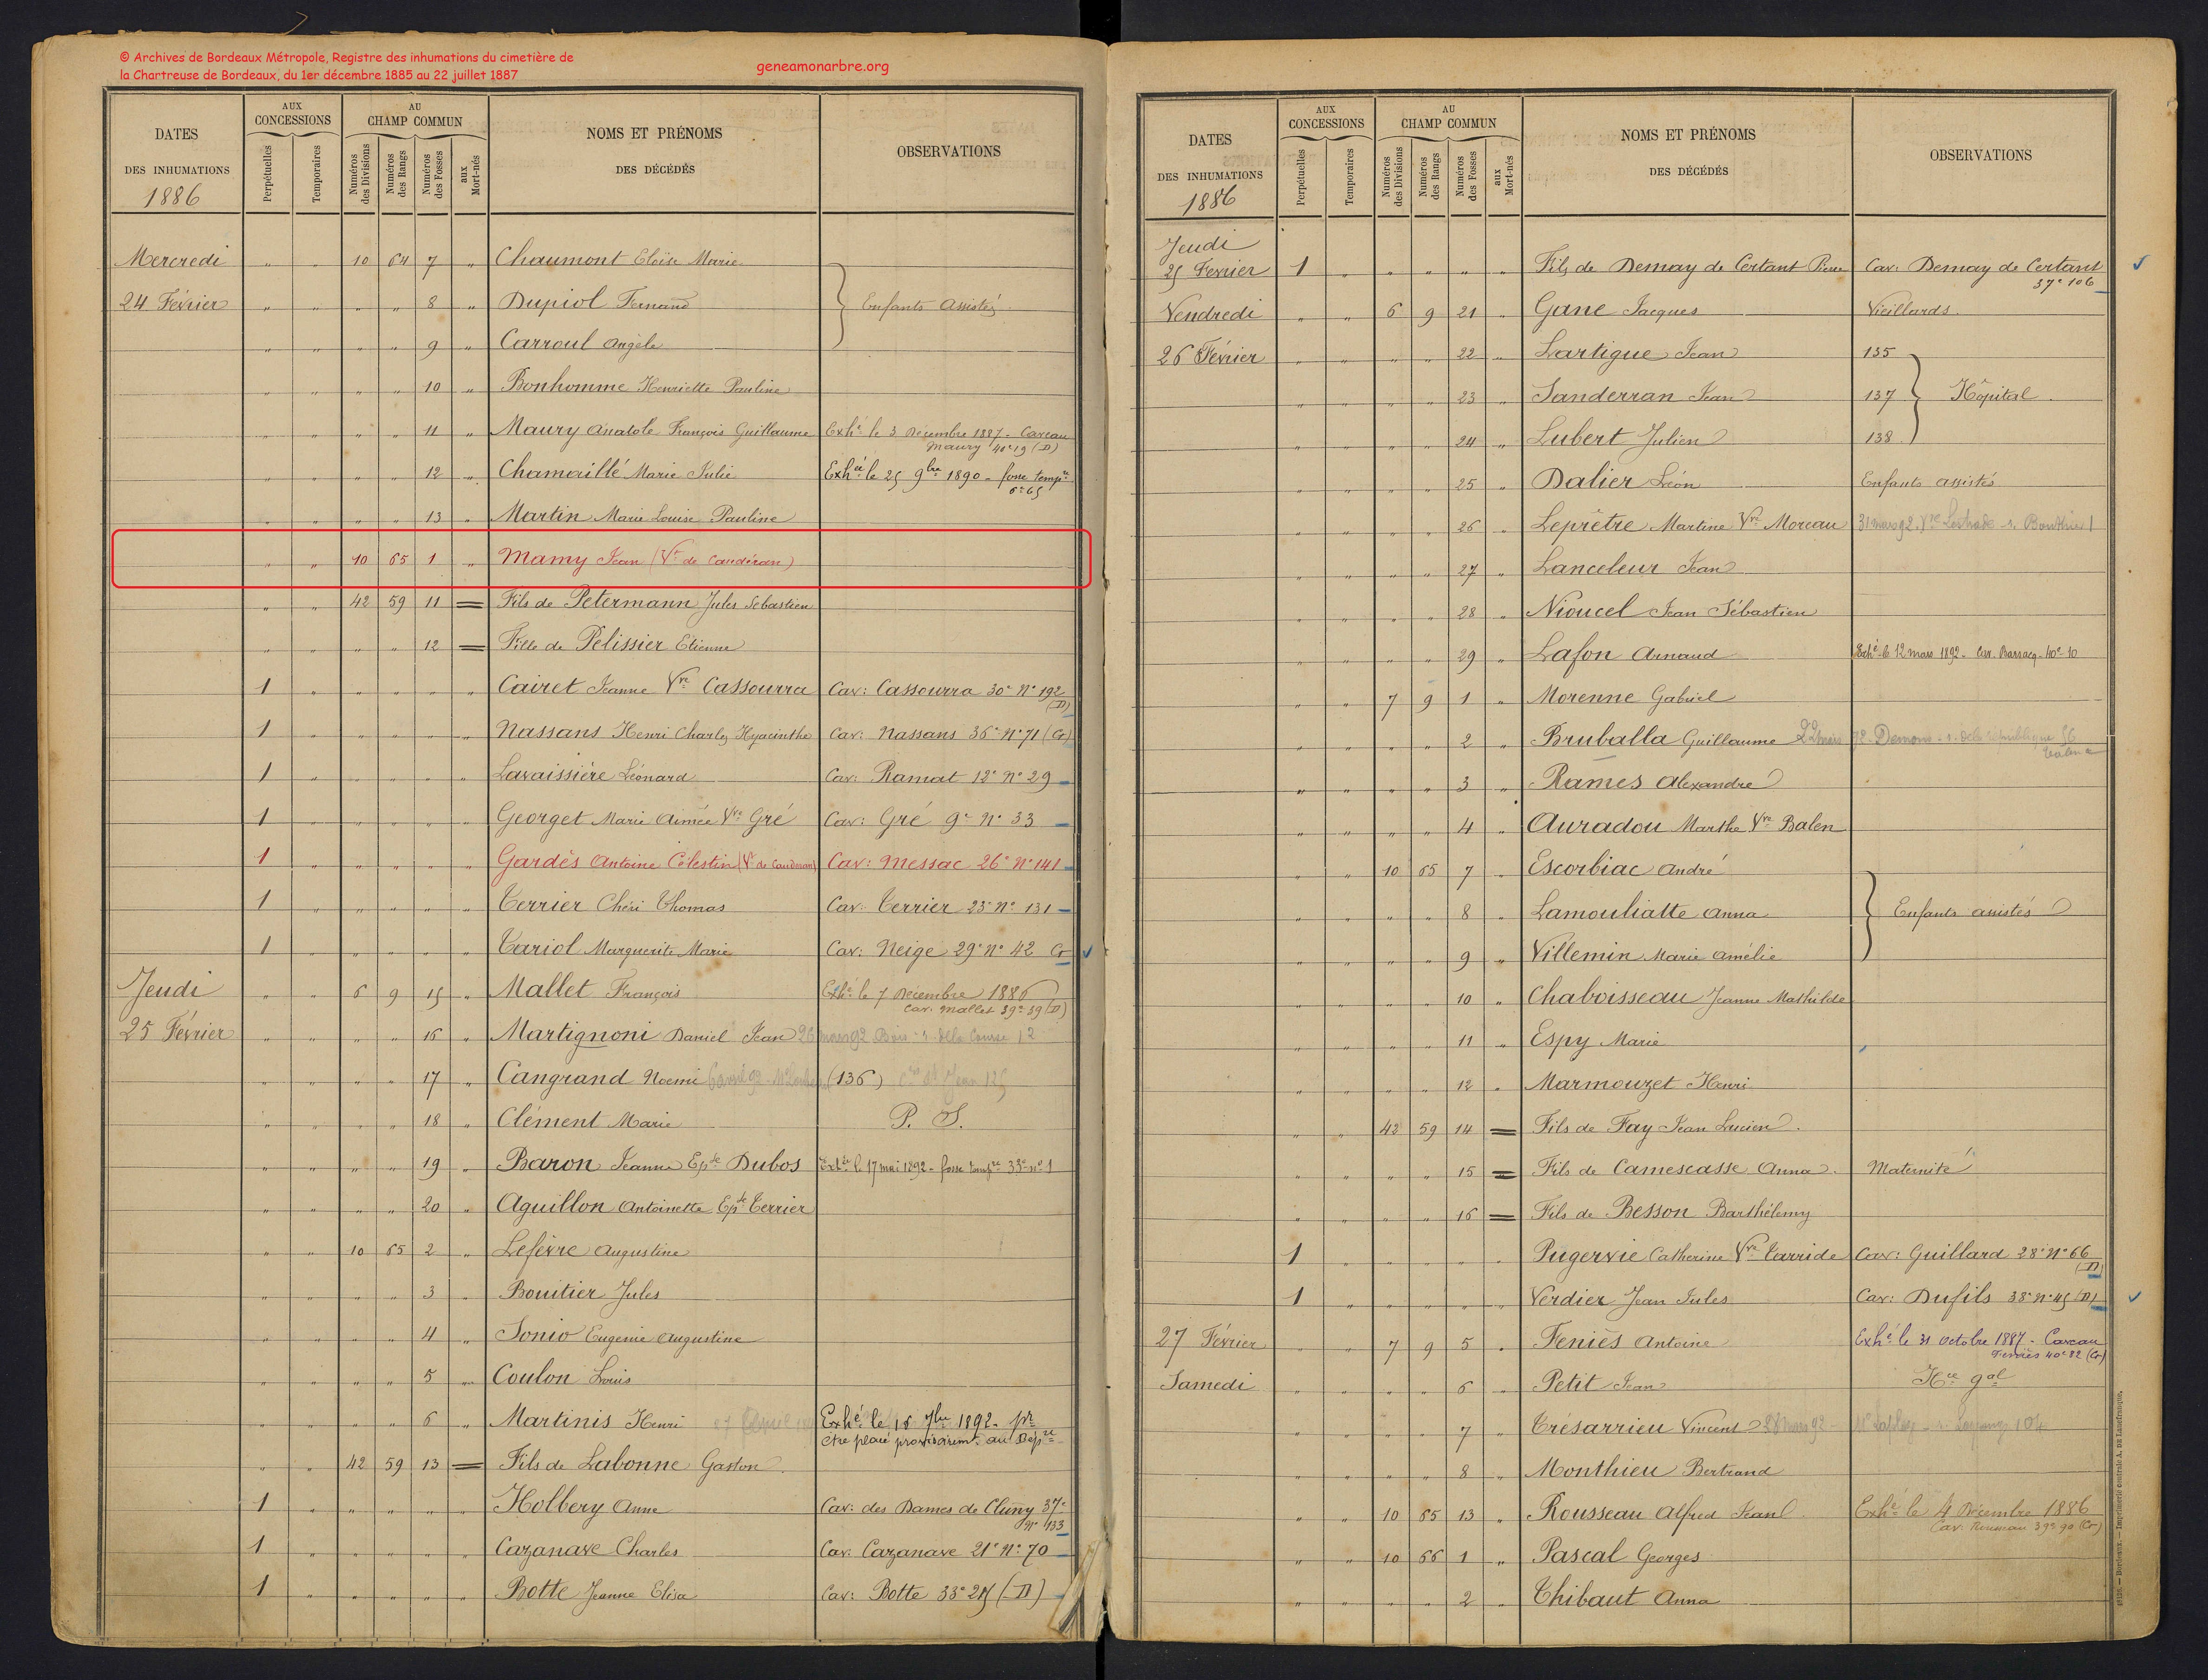 © Archives de Bordeaux Métropole, Registre des inhumations du cimetière de
la Chartreuse de Bordeaux, du 1er décembre 1885 au 22 juillet 1887
geneamonarbre.org
DATES DES INHUMATIONS 1886 AUX CONCESSIONS Perpétuelles Temporaires AU CHAMP COMMUN Numéros des Divisions Numéros des Rangs Numéros des Fosses aux Mort-nés NOMS ET PRÉNOMS DES DÉCÉDÉS OBSERVATIONS
Mercredi " " 10 64 7 " Chaumont Eloïse Marie
24 Février " " " " 8 " Dupiol Fernand Enfants Assistés
" " " " 9 " Carroul Angèle
" " " " 10 " Bonhomme Henriette Pauline
" " " " 11 " Maury Anatole François Guillaume Exhé le 3 Décembre 1887 - Caveau
Maury 40e 19 (D)
" " " " 12 " Chamaillé Marie Julie Exhée le 25 9bre 1890 - fosse tempre
6e 65
" " " " 13 " Martin Marie Louise Pauline
" " 10 65 1 " Mamy Jean (Vt de Caudéran)
" " 42 59 11 = Fils de Petermann Jules Sébastien
" " " " 12 = Fille de Pelissier Etienne
1 " " " " " Cairet Jeanne Vve Cassourra Cav: Cassourra 30e No 192
(D)
1 " " " " " Nassans Henri Charles Hyacinthe Cav: Nassans 36e No 71 (G)
1 " " " " " Lavaissière Léonard Cav: Ramat 12e No 29
1 " " " " " Georget Marie Aimée Vve Gré Cav: Gré 9e No 33
1 " " " " " Gardès Antoine Célestin (Vt de Caudéran) Cav: Messac 26e No 141
1 " " " " " Terrier Chéri Thomas Cav: Terrier 25e No 131
1 " " " " " Tariol Marguerite Marie Cav: Neige 29e No 42 G
Jeudi " " 6 9 15 " Mallet François Exhé le 7 Décembre 1886
Cav. Mallet 39e 39 (D)
25 Février " " " " 16 " Martignoni Daniel Jean 26 mars 92
" " " " 17 " Cangrand Noemi (136)
" " " " 18 " Clément Marie P. S.
" " " " 19 " Baron Jeanne Epse Dubos Exhée le 17 mai 1892 - fosse tempre 33e no 1
" " " " 20 " Aguillon Antoinette Epse Terrier
" " 10 65 2 " Lefèvre Augustine
" " " " 3 " Bouitier Jules
" " " " 4 " Sonio Eugenie Augustine
" " " " 5 " Coulon Louis
" " " " 6 " Martinis Henri Exhé le 16 7bre 1892 - pr
être placé provisoiremt au Dépre
" " 42 59 13 = Fils de Labonne Gaston
1 " " " " " Holbery Anne Cav: des Dames de Cluny 37e
No 133
1 " " " " " Cazanave Charles Cav: Cazanave 21e No 70
1 " " " " " Botte Jeanne Elisa Cav: Botte 33e 25 (D)
DATES DES INHUMATIONS 1886 AUX CONCESSIONS Perpétuelles Temporaires AU CHAMP COMMUN Numéros des Divisions Numéros des Rangs Numéros des Fosses aux Mort-nés NOMS ET PRÉNOMS DES DÉCÉDÉS OBSERVATIONS
Jeudi
25 Fevrier 1 " " " " " Fils de Demay de Certant Pierre Cav: Demay de Certant
37e 106
Vendredi " " 6 9 21 " Gane Jacques Vieillards.
26 Février " " " " 22 " Lartigue Jean 135
" " " " 23 " Sanderran Jean 137 Hôpital
" " " " 24 " Lubert Julien 138
" " " " 25 " Dalier Léon Enfants assistés
" " " " 26 " Leprêtre Martine Vve Moreau 31 mars 92
" " " " 27 " Lanceleur Jean
" " " " 28 " Nioucel Jean Sébastien
" " " " 29 " Lafon Arnaud Exhé le 12 mars 1892 - Cav. Barsacq - 40e 10
" " 7 9 1 " Morenne Gabriel
" " " " 2 " Bruballa Guillaume 22 mars 92 - Demons - r. de la république 56
" " " " 3 " Rames Alexandre
" " " " 4 " Auradou Marthe Vve Balen
" " 10 65 7 " Escorbiac André
" " " " 8 " Lamouliatte Anna Enfants assistés
" " " " 9 " Villemin Marie Amélie
" " " " 10 " Chaboisseau Jeanne Mathilde
" " " " 11 " Espy Marie
" " " " 12 " Marmouzet Henri
" " 42 59 14 = Fils de Fay Jean Lucien.
" " " " 15 = Fils de Camescasse Anna. Maternité
" " " " 16 = Fils de Besson Barthélemy
1 " " " " " Pugervie Catherine Vve Tarride Cav: Guillard 28e No 66
(D)
1 " " " " " Verdier Jean Jules Cav: Dufils 38e No 45 (D)
27 Février " " 7 9 5 " Feniès Antoine Exhé le 31 Octobre 1887 - Caveau
Feniès 40e 82 (G)
Samedi " " " " 6 " Petit Jean Hce gal
" " " " 7 " Trésarrieu Vincent 28 mars 92
" " " " 8 " Monthieu Bertrand
" " 10 65 13 " Rousseau Alfred Jean Exhé le 4 Décembre 1886
Cav. 39e 90 (G)
" " 10 66 1 " Pascal Georges
" " " " 2 " Thibaut Anna
Bordeaux. — Imprimerie centrale A. DE Lanefranque.